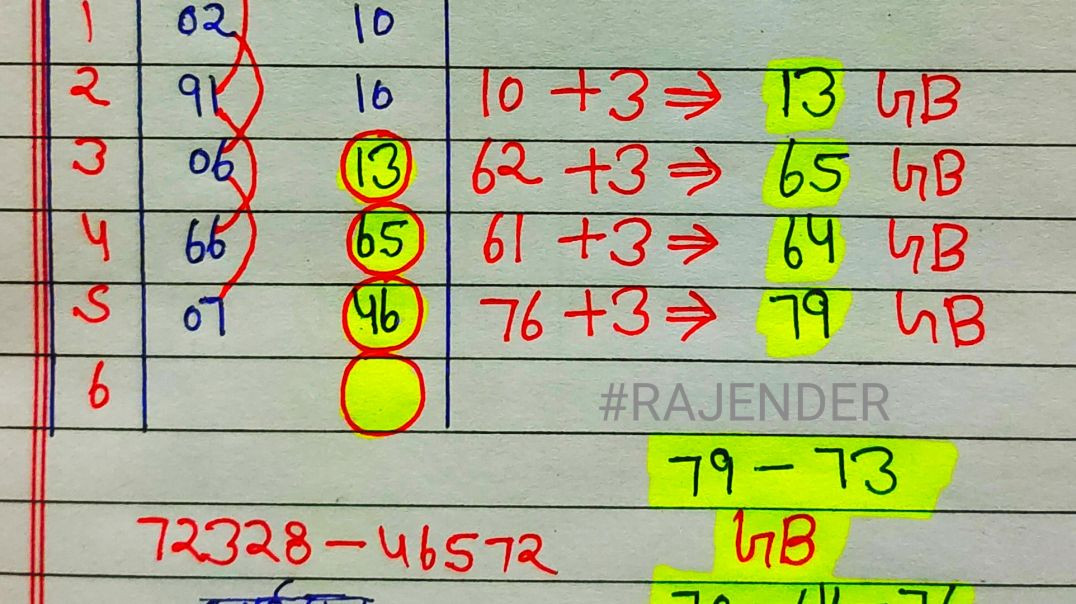 1 02 10
2 91 10 10 +3 ⇒ 13 GB
3 06 13 62 +3 ⇒ 65 GB
4 66 65 61 +3 ⇒ 64 GB
5 07 46 76 +3 ⇒ 79 GB
6
#RAJENDER
79 - 73
72328 - 46572 GB